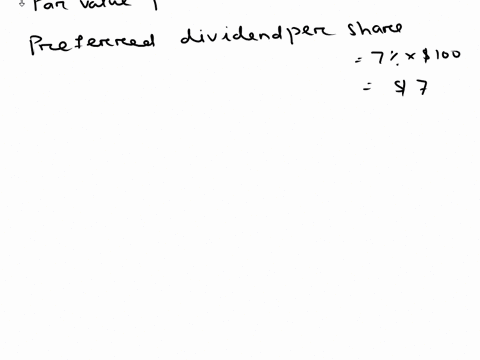 Par value
Preferred dividend per share
= 7% × $100
= $7